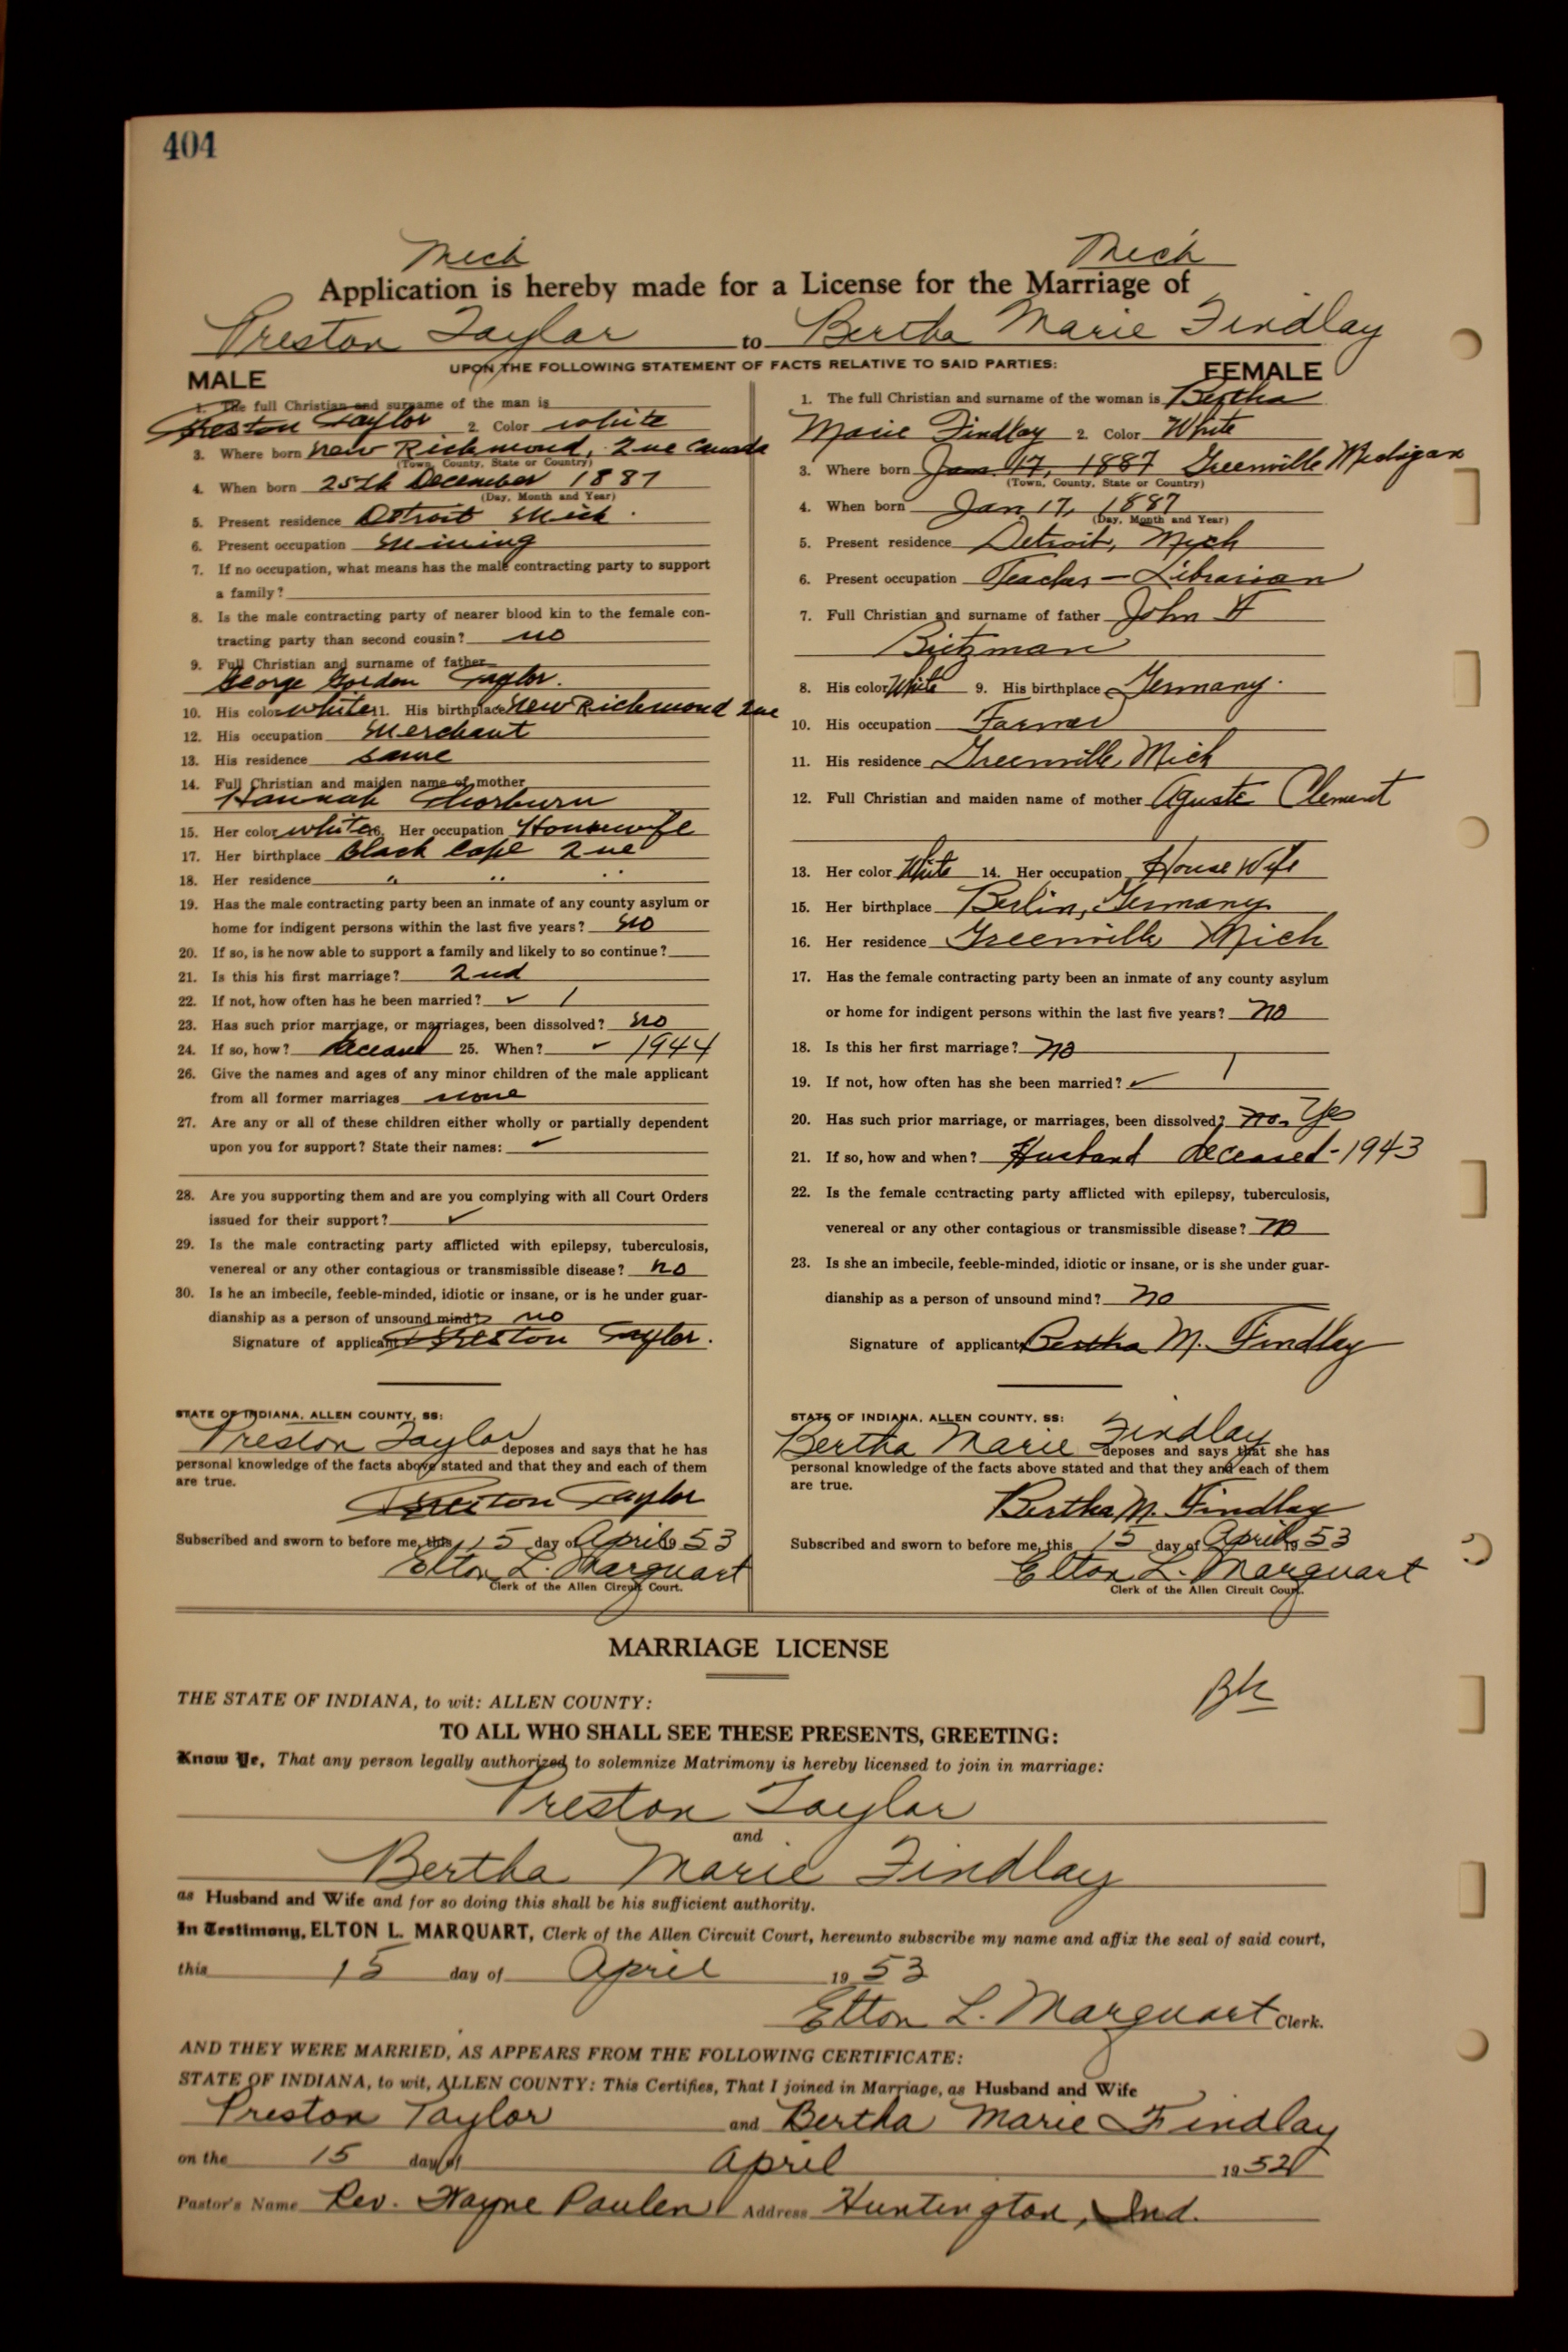 404
Mich Mich
Application is hereby made for a License for the Marriage of
Preston Taylor to Bertha Marie Findlay
UPON THE FOLLOWING STATEMENT OF FACTS RELATIVE TO SAID PARTIES:
MALE
1. The full Christian and surname of the man is
Preston Taylor 2. Color white
3. Where born New Richmond, Que Canada
(Town, County, State or Country)
4. When born 25th December 1881
(Day, Month and Year)
5. Present residence Detroit Mich.
6. Present occupation Mining
7. If no occupation, what means has the male contracting party to support
a family?
8. Is the male contracting party of nearer blood kin to the female con-
tracting party than second cousin? no
9. Full Christian and surname of father
George Gordon Taylor.
10. His color white 11. His birthplace New Richmond Que
12. His occupation Merchant
13. His residence same
14. Full Christian and maiden name of mother
Hannah Thorburn
15. Her color white 16. Her occupation Housewife
17. Her birthplace Black Cape Que
18. Her residence " " "
19. Has the male contracting party been an inmate of any county asylum or
home for indigent persons within the last five years? No
20. If so, is he now able to support a family and likely to so continue?
21. Is this his first marriage? 2nd
22. If not, how often has he been married? ✓ 1
23. Has such prior marriage, or marriages, been dissolved? No
24. If so, how? 25. When? ✓ 1944
26. Give the names and ages of any minor children of the male applicant
from all former marriages none
27. Are any or all of these children either wholly or partially dependent
upon you for support? State their names: ✓
28. Are you supporting them and are you complying with all Court Orders
issued for their support? ✓
29. Is the male contracting party afflicted with epilepsy, tuberculosis,
venereal or any other contagious or transmissible disease? no
30. Is he an imbecile, feeble-minded, idiotic or insane, or is he under guar-
dianship as a person of unsound mind? no
Signature of applicant Preston Taylor.
STATE OF INDIANA, ALLEN COUNTY, SS:
Preston Taylor deposes and says that he has
personal knowledge of the facts above stated and that they and each of them
are true.
Preston Taylor
Subscribed and sworn to before me, this 15 day of April 19 53
Elton L. Marquart
Clerk of the Allen Circuit Court.
FEMALE
1. The full Christian and surname of the woman is Bertha
Marie Findlay 2. Color White
3. Where born Jan 17, 1887 Greenville Michigan
(Town, County, State or Country)
4. When born Jan 17, 1887
(Day, Month and Year)
5. Present residence Detroit, Mich
6. Present occupation Teacher - Librarian
7. Full Christian and surname of father John
8. His color White 9. His birthplace Germany.
10. His occupation Farmer
11. His residence Greenville, Mich
12. Full Christian and maiden name of mother Aguste Clement
13. Her color White 14. Her occupation House Wife
15. Her birthplace Berlin, Germany
16. Her residence Greenville Mich
17. Has the female contracting party been an inmate of any county asylum
or home for indigent persons within the last five years? no
18. Is this her first marriage? no
19. If not, how often has she been married? ✓ 1
20. Has such prior marriage, or marriages, been dissolved? no. Yes
21. If so, how and when? Husband deceased - 1943
22. Is the female contracting party afflicted with epilepsy, tuberculosis,
venereal or any other contagious or transmissible disease? no
23. Is she an imbecile, feeble-minded, idiotic or insane, or is she under guar-
dianship as a person of unsound mind? no
Signature of applicant Bertha M. Findlay
STATE OF INDIANA, ALLEN COUNTY, SS:
Bertha Marie Findlay deposes and says that she has
personal knowledge of the facts above stated and that they and each of them
are true.
Bertha M. Findlay
Subscribed and sworn to before me, this 15 day of April 19 53
Elton L. Marquart
Clerk of the Allen Circuit Court.
MARRIAGE LICENSE
THE STATE OF INDIANA, to wit: ALLEN COUNTY:
TO ALL WHO SHALL SEE THESE PRESENTS, GREETING:
Know Ye, That any person legally authorized to solemnize Matrimony is hereby licensed to join in marriage:
Preston Taylor
and
Bertha Marie Findlay
as Husband and Wife and for so doing this shall be his sufficient authority.
In Testimony, ELTON L. MARQUART, Clerk of the Allen Circuit Court, hereunto subscribe my name and affix the seal of said court,
this 15 day of April 19 53
Elton L. Marquart Clerk.
AND THEY WERE MARRIED, AS APPEARS FROM THE FOLLOWING CERTIFICATE:
STATE OF INDIANA, to wit, ALLEN COUNTY: This Certifies, That I joined in Marriage, as Husband and Wife
Preston Taylor and Bertha Marie Findlay
on the 15 day of April 19
Pastor's Name Rev. Wayne Paulen Address Huntington, Ind.